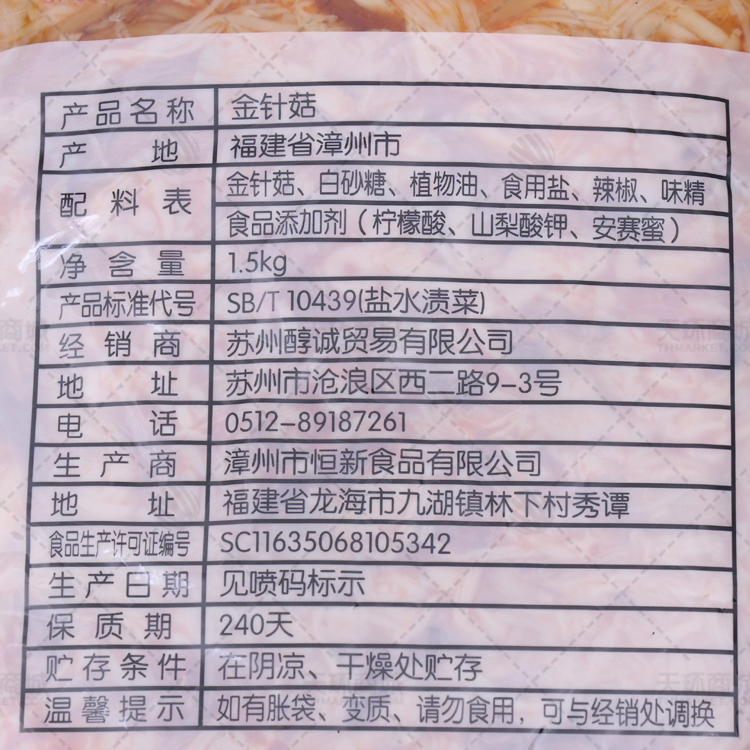 产品名称 金针菇
产地 福建省漳州市
配料表 金针菇、白砂糖、植物油、食用盐、辣椒、味精
食品添加剂（柠檬酸、山梨酸钾、安赛蜜）
净含量 1.5kg
产品标准代号 SB/T 10439(盐水渍菜)
经销商 苏州醇诚贸易有限公司
地址 苏州市沧浪区西二路9-3号
电话 0512-89187261
生产商 漳州市恒新食品有限公司
地址 福建省龙海市九湖镇林下村秀谭
食品生产许可证编号 SC11635068105342
生产日期 见喷码标示
保质期 240天
贮存条件 在阴凉、干燥处贮存
温馨提示 如有胀袋、变质、请勿食用，可与经销处调换